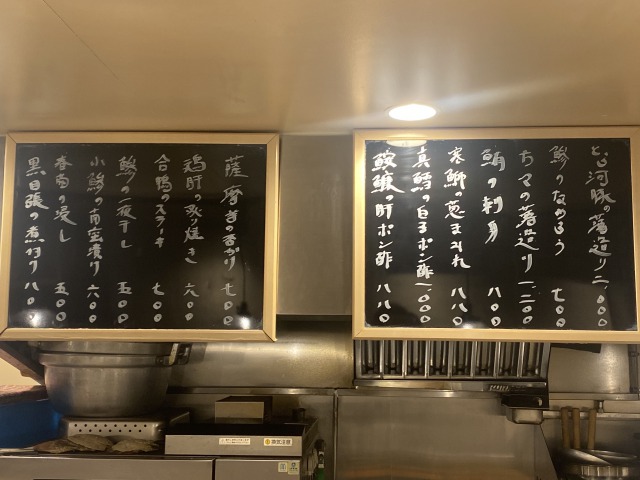 とら河豚の薄造り 二、〇〇〇
鯵のなめろう 七〇〇
の薄造り 一、二〇〇
の刺身 八〇〇
寒鰤の葱まみれ 八八〇
真鱈の白子ポン酢 一、〇〇〇
鮟鱇の肝ポン酢 八八〇
薩摩芋の 七〇〇
鶏肝の炙り焼き 六〇〇
合鴨のステーキ 七〇〇
鯵の一夜干し 五〇〇
小鯵の南蛮漬け 六〇〇
春菊の浸し 五〇〇
黒目張の煮付け 八〇〇